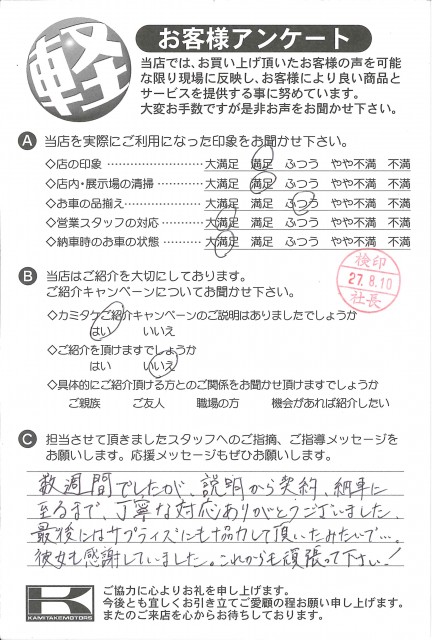 軽
お客様アンケート
当店では、お買い上げ頂いたお客様の声を可能
な限り現場に反映し、お客様により良い商品と
サービスを提供する事に努めています。
大変お手数ですが是非お声をお聞かせ下さい。
A 当店を実際にご利用になった印象をお聞かせ下さい。
◇店の印象 ………………… 大満足 満足 ふつう やや不満 不満
◇店内・展示場の清掃 ………… 大満足 満足 ふつう やや不満 不満
◇お車の品揃え ……………… 大満足 満足 ふつう やや不満 不満
◇営業スタッフの対応 ………… 大満足 満足 ふつう やや不満 不満
◇納車時のお車の状態 ………… 大満足 満足 ふつう やや不満 不満
B 当店はご紹介を大切にしてあります。
ご紹介キャンペーンについてお聞かせ下さい。
検印
27.8.10
社長
◇カミタケご紹介キャンペーンのご説明はありましたでしょうか
はい いいえ
◇ご紹介を頂けますでしょうか
はい いいえ
◇具体的にご紹介頂ける方とのご関係をお聞かせ頂けますでしょうか
ご親族 ご友人 職場の方 機会があれば紹介したい
C 担当させて頂きましたスタッフへのご指摘、ご指導メッセージを
お願いします。応援メッセージもぜひお願いします。
数週間でしたが、説明から契約、納車に
至るまで、丁寧な対応ありがとうございました。
最後にはサプライズにも協力して頂いたみたいで…。
彼女も感謝していました。これからも頑張って下さい!
K
KAMITAKEMOTORS
ご協力に心よりお礼を申し上げます。
今後とも宜しくお引き立てご愛顧の程お願い申し上げます。
またのご来店を心からお待ちしております。